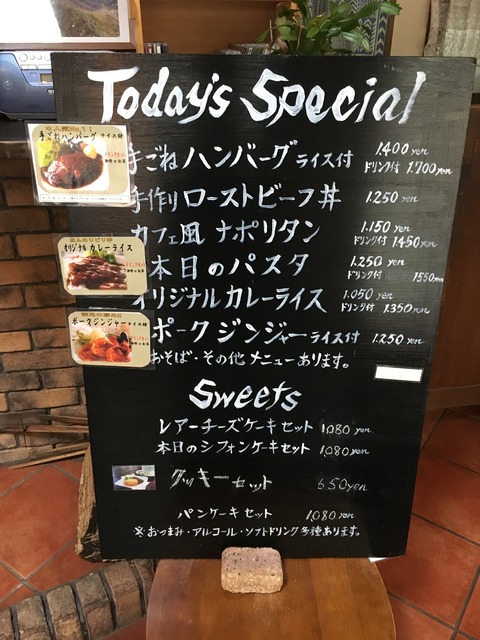 Today's Special
手ごねハンバーグ ライス付 1.400 yen
ドリンク付 1.700 yen
手作りローストビーフ丼 1.250 yen
カフェ風 ナポリタン 1.150 yen
ドリンク付 1450 yen
本日のパスタ 1.250 yen
ドリンク付 1550 yen
オリジナルカレーライス 1.050 yen
ドリンク付 1.350 yen
ポークジンジャーライス付 1.250 yen
おそば・その他 メニューあります。
手ごねハンバーグ ライス付
オリジナルカレーライス
ポークジンジャー ライス付
Sweets
レアーチーズケーキセット 1,080 yen
本日のシフォンケーキセット 1,080 yen
クッキーセット 650yen
パンケーキセット 1,080 yen
※おつまみ・アルコール・ソフトドリンク多種あります。